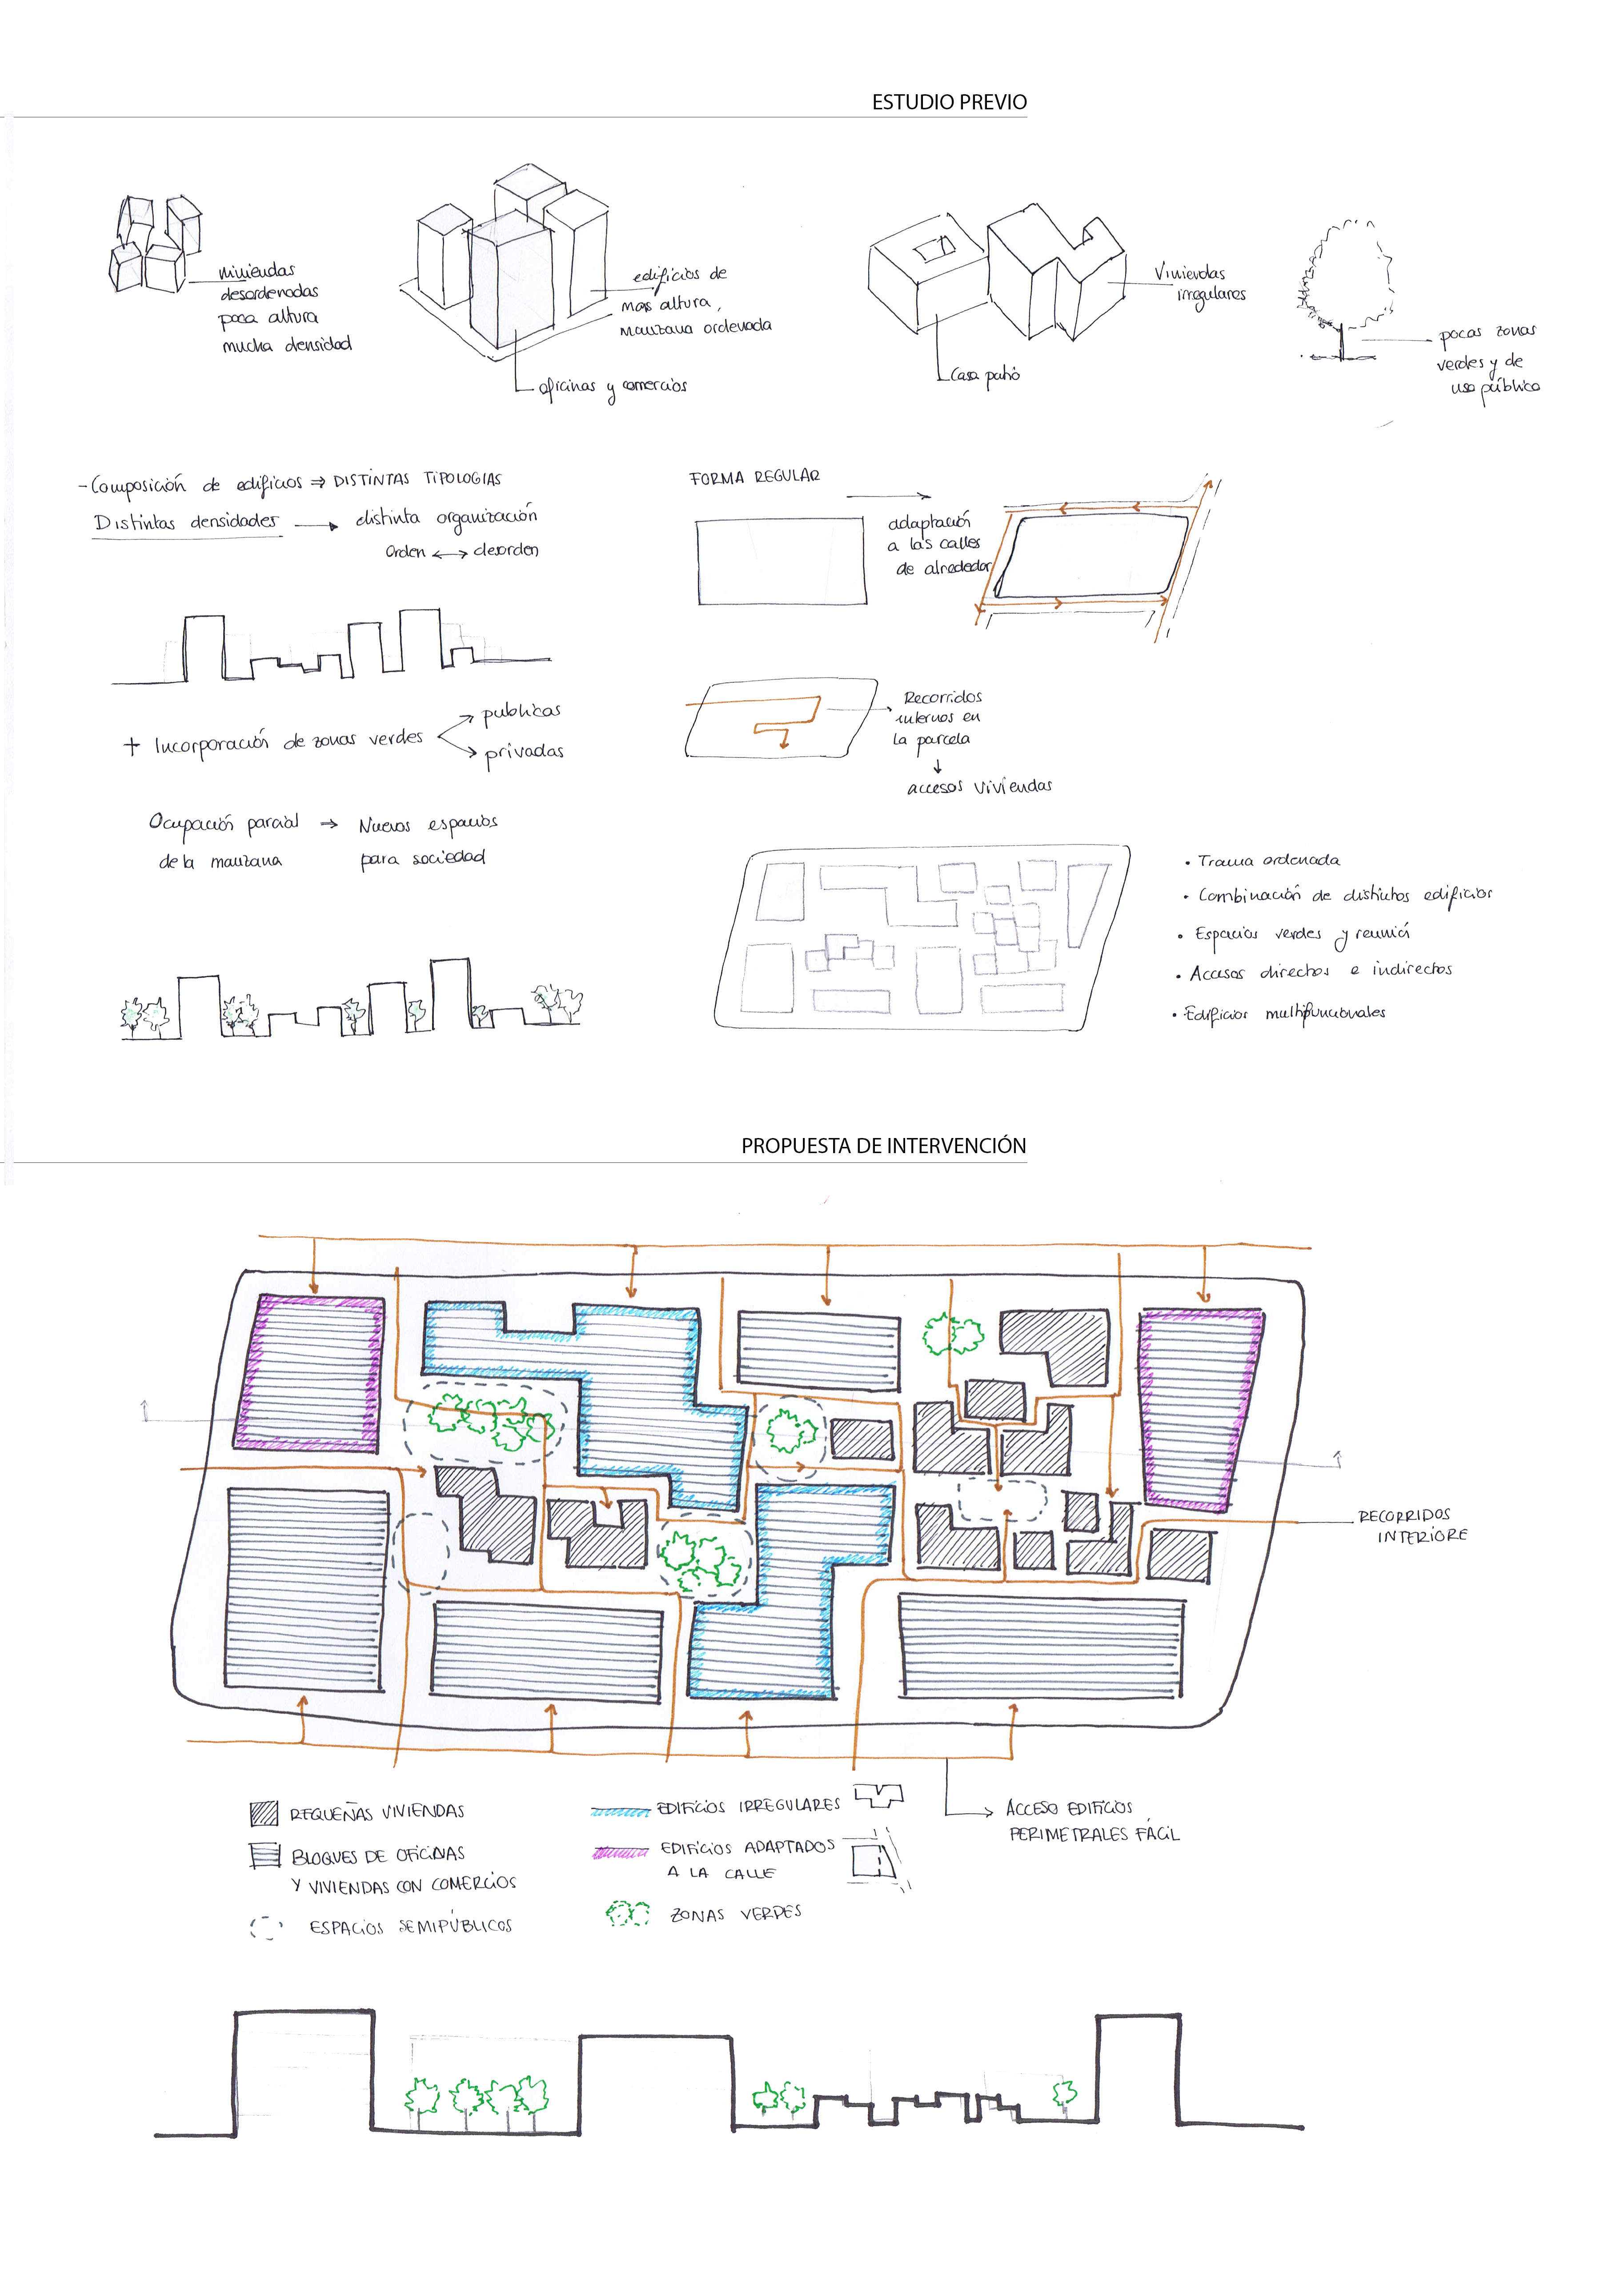 ESTUDIO PREVIO
viviendas
desordenadas
poca altura
mucha densidad
edificios de
mas altura,
manzana ordenada
oficinas y comercios
Casa patio
Viviendas
irregulares
pocas zonas
verdes y de
uso público
- Composición de edificios ⇒ DISTINTAS TIPOLOGIAS
Distintas densidades → distinta organización
Orden ↔ desorden
FORMA REGULAR
adaptación
a las calles
de alrededor
+ Incorporación de zonas verdes
publicas
privadas
Recorridos
internos en
la parcela
↓
accesos viviendas
Ocupación parcial → Nuevos espacios
de la manzana para sociedad
• Trama ordenada
• Combinación de distintos edificios
• Espacios verdes y reunió
• Accesos directos e indirectos
• Edificios multifuncionales
PROPUESTA DE INTERVENCIÓN
RECORRIDOS
INTERIORE
PEQUEÑAS VIVIENDAS
BLOQUES DE OFICINAS
Y VIVIENDAS CON COMERCIOS
ESPACIOS SEMIPÚBLICOS
EDIFICIOS IRREGULARES
EDIFICIOS ADAPTADOS
A LA CALLE
ZONAS VERDES
ACCESO EDIFICIOS
PERIMETRALES FÁCIL